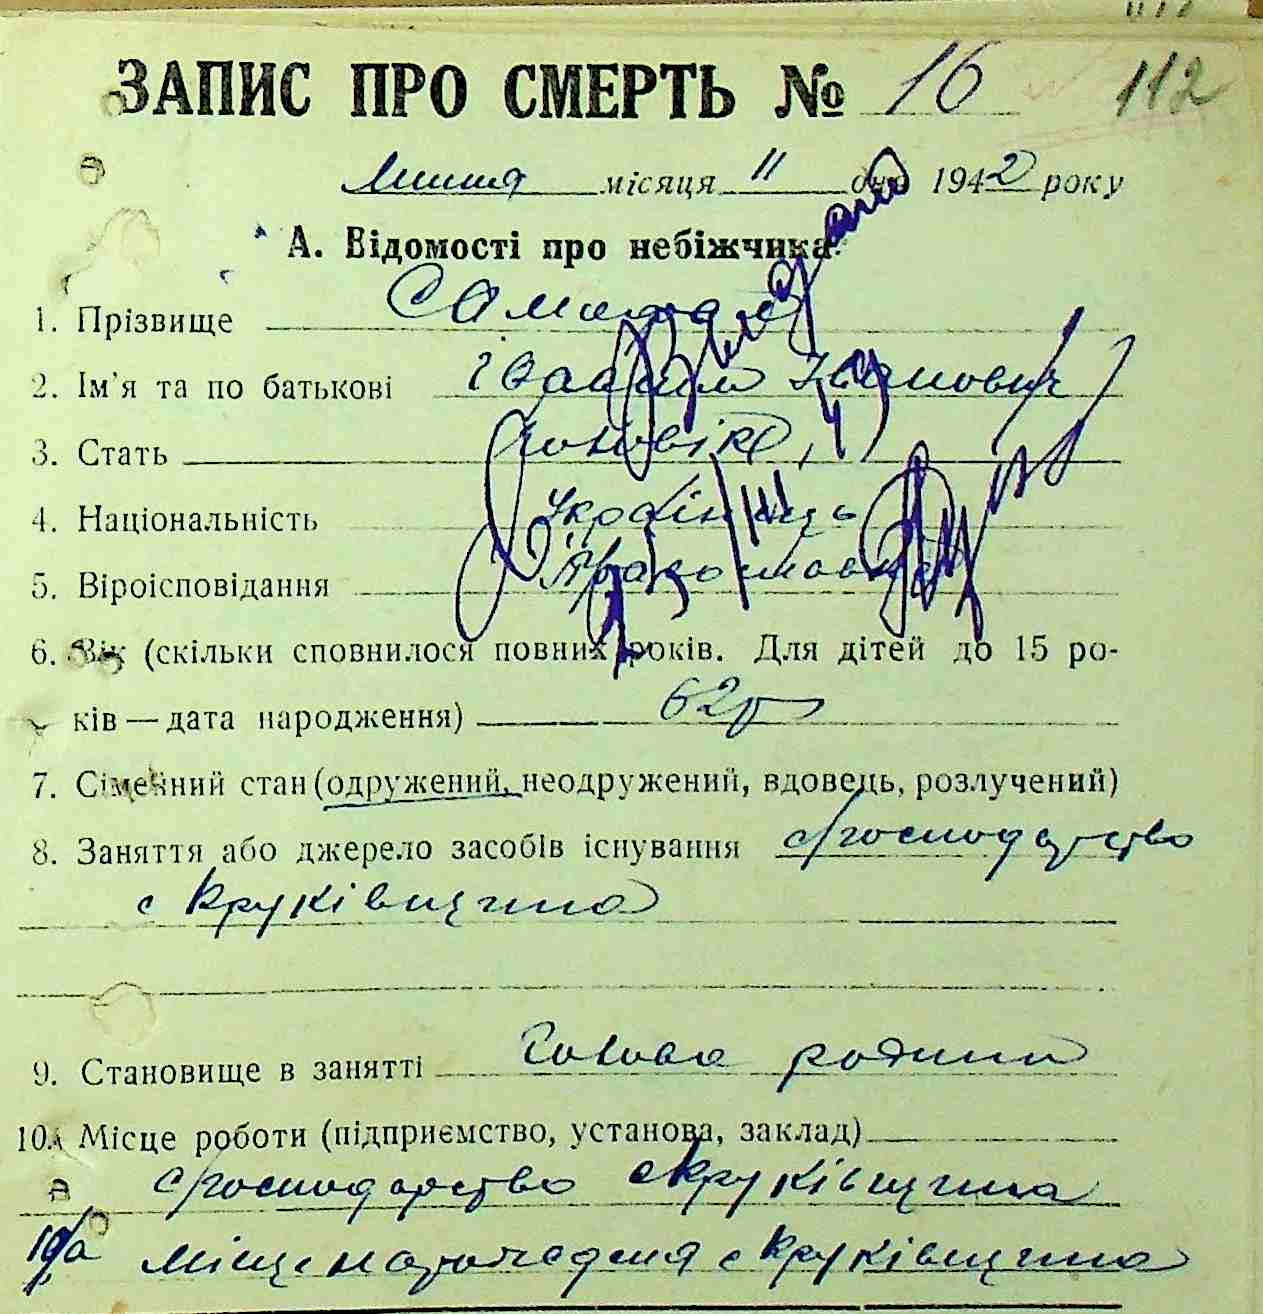 ЗАПИС ПРО СМЕРТЬ № 16 112
липня місяця 11 дня 1942 року
А. Відомості про небіжчика:
1. Прізвище
2. Ім'я та по батькові Іванович
3. Стать чоловік
4. Національність Українець
5. Віроісповідання Православне
6. Вік (скільки сповнилося повних років. Для дітей до 15 ро-
ків — дата народження) 62 р
7. Сімейний стан (одружений, неодружений, вдовець, розлучений)
8. Заняття або джерело засобів існування с/господарство
с Круківщина
9. Становище в занятті Голова родини
10. Місце роботи (підприємство, установа, заклад)
с/господарство с Круківщина
10/а місце народження с Круківщина